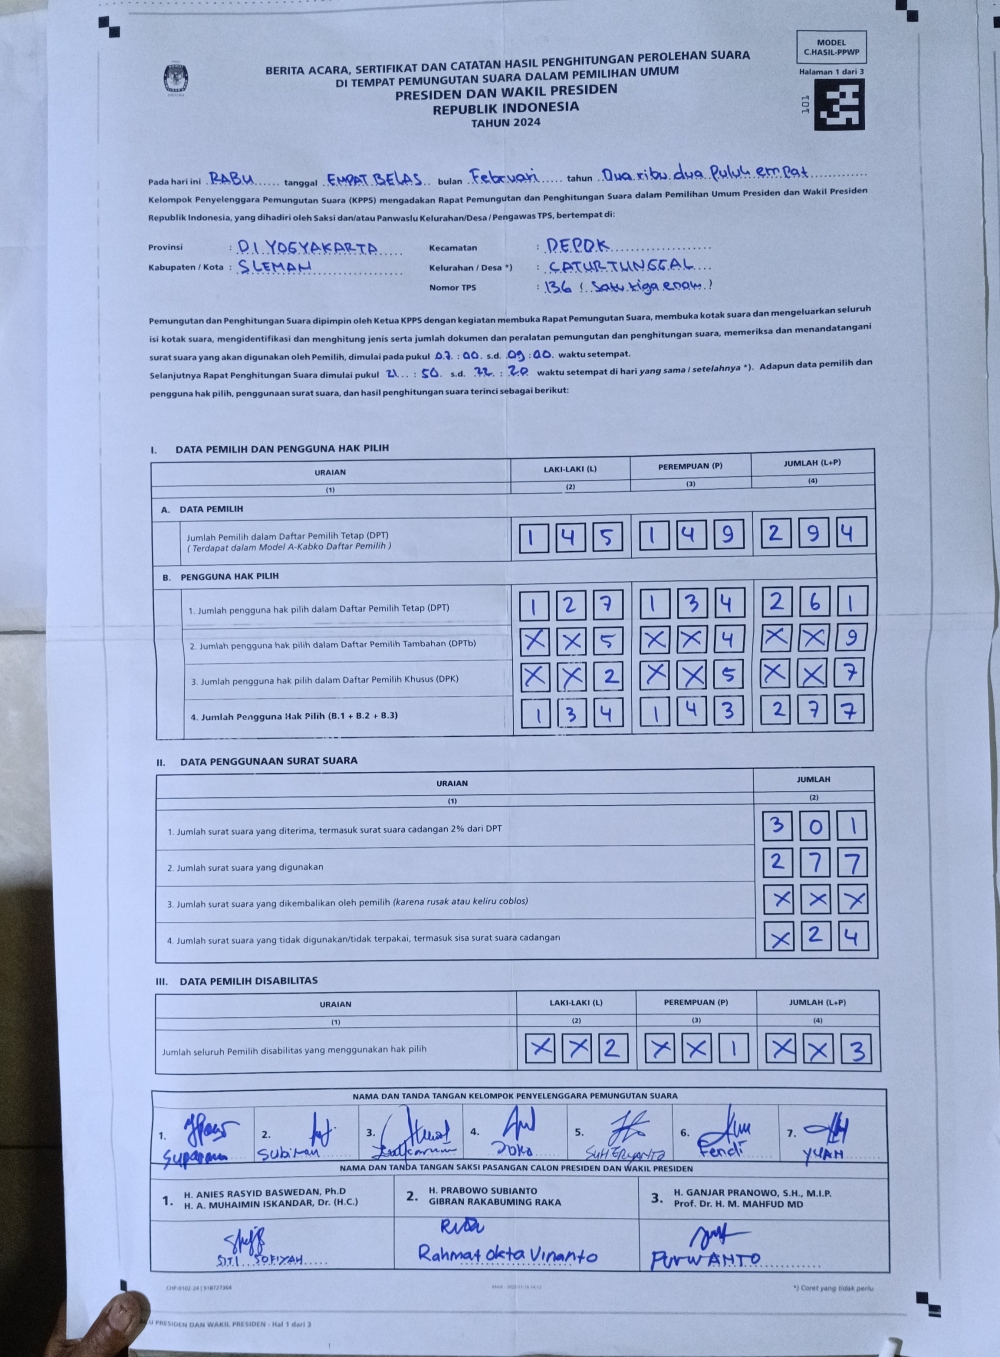 MODEL
C.HASIL-PPWP
Halaman 1 dari 3
101
BERITA ACARA, SERTIFIKAT DAN CATATAN HASIL PENGHITUNGAN PEROLEHAN SUARA
DI TEMPAT PEMUNGUTAN SUARA DALAM PEMILIHAN UMUM
PRESIDEN DAN WAKIL PRESIDEN
REPUBLIK INDONESIA
TAHUN 2024
Pada hari ini RABU tanggal EMPAT BELAS bulan Februari tahun Dua ribu dua Puluh empat
Kelompok Penyelenggara Pemungutan Suara (KPPS) mengadakan Rapat Pemungutan dan Penghitungan Suara dalam Pemilihan Umum Presiden dan Wakil Presiden
Republik Indonesia, yang dihadiri oleh Saksi dan/atau Panwaslu Kelurahan/Desa / Pengawas TPS, bertempat di:
Provinsi : D.I. YOGYAKARTA Kecamatan : DEPOK
Kabupaten / Kota : SLEMAN Kelurahan / Desa *) : CATURTUNGGAL
Nomor TPS : 136 ( Satu tiga enam )
Pemungutan dan Penghitungan Suara dipimpin oleh Ketua KPPS dengan kegiatan membuka Rapat Pemungutan Suara, membuka kotak suara dan mengeluarkan seluruh
isi kotak suara, mengidentifikasi dan menghitung jenis serta jumlah dokumen dan peralatan pemungutan dan penghitungan suara, memeriksa dan menandatangani
surat suara yang akan digunakan oleh Pemilih, dimulai pada pukul 07 : 00 s.d. 09 : 00 waktu setempat.
Selanjutnya Rapat Penghitungan Suara dimulai pukul 21 : 50 s.d. 22 : 20 waktu setempat di hari yang sama / setelahnya *). Adapun data pemilih dan
pengguna hak pilih, penggunaan surat suara, dan hasil penghitungan suara terinci sebagai berikut:
I. DATA PEMILIH DAN PENGGUNA HAK PILIH
URAIAN LAKI-LAKI (L) PEREMPUAN (P) JUMLAH (L+P)
(1) (2) (3) (4)
A. DATA PEMILIH
Jumlah Pemilih dalam Daftar Pemilih Tetap (DPT) 1 4 5 1 4 9 2 9 4
( Terdapat dalam Model A-Kabko Daftar Pemilih )
B. PENGGUNA HAK PILIH
1. Jumlah pengguna hak pilih dalam Daftar Pemilih Tetap (DPT) 1 2 7 1 3 4 2 6 1
2. Jumlah pengguna hak pilih dalam Daftar Pemilih Tambahan (DPTb) X X 5 X X 4 X X 9
3. Jumlah pengguna hak pilih dalam Daftar Pemilih Khusus (DPK) X X 2 X X 5 X X 7
4. Jumlah Pengguna Hak Pilih (B.1 + B.2 + B.3) 1 3 4 1 4 3 2 7 7
II. DATA PENGGUNAAN SURAT SUARA
URAIAN JUMLAH
(1) (2)
1. Jumlah surat suara yang diterima, termasuk surat suara cadangan 2% dari DPT 3 0 1
2. Jumlah surat suara yang digunakan 2 7 7
3. Jumlah surat suara yang dikembalikan oleh pemilih (karena rusak atau keliru coblos) X X X
4. Jumlah surat suara yang tidak digunakan/tidak terpakai, termasuk sisa surat suara cadangan X 2 4
III. DATA PEMILIH DISABILITAS
URAIAN LAKI-LAKI (L) PEREMPUAN (P) JUMLAH (L+P)
(1) (2) (3) (4)
Jumlah seluruh Pemilih disabilitas yang menggunakan hak pilih X X 2 X X 1 X X 3
NAMA DAN TANDA TANGAN KELOMPOK PENYELENGGARA PEMUNGUTAN SUARA
1. 2. 3. 4. 5. 6. 7.
Subiman Joko SUHERYANTO Fendi YUAN
NAMA DAN TANDA TANGAN SAKSI PASANGAN CALON PRESIDEN DAN WAKIL PRESIDEN
1. H. ANIES RASYID BASWEDAN, Ph.D
H. A. MUHAIMIN ISKANDAR, Dr. (H.C.)
2. H. PRABOWO SUBIANTO
GIBRAN RAKABUMING RAKA
3. H. GANJAR PRANOWO, S.H., M.I.P.
Prof. Dr. H. M. MAHFUD MD
SITI SOFIYAH Rahmat Okta Vinanto PURWANTO
*) Coret yang tidak perlu
PRESIDEN DAN WAKIL PRESIDEN - Hal 1 dari 3